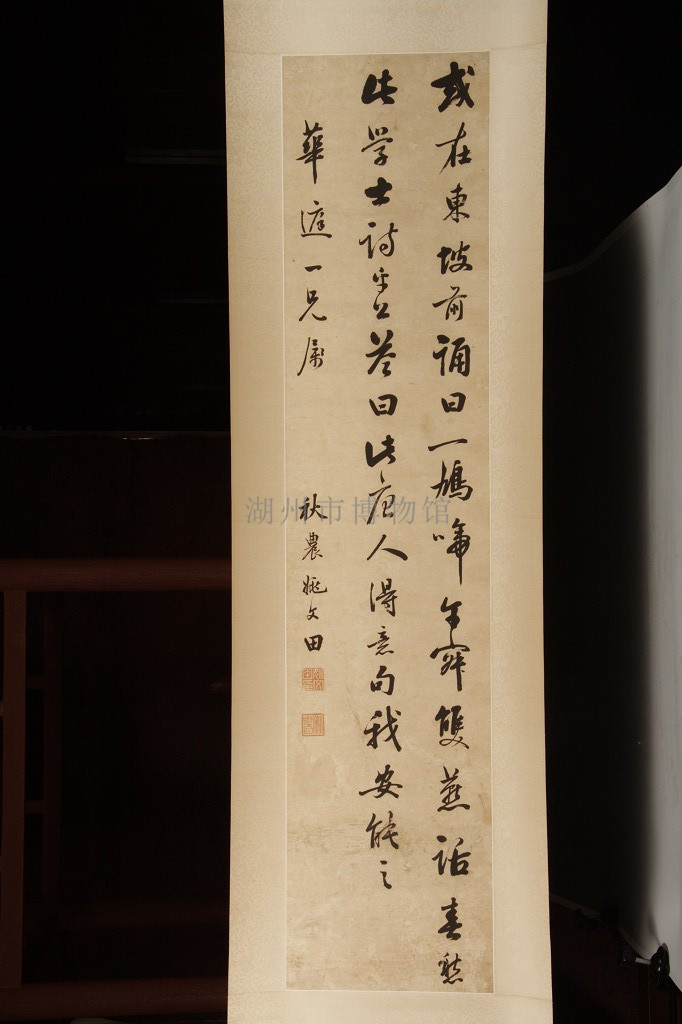 或在東坡前誦曰一鳩啼午寂雙燕話春愁
此學士詩否公答曰此唐人得意句我安能之
華遮一兄屬
秋農姚文田
湖州市博物馆